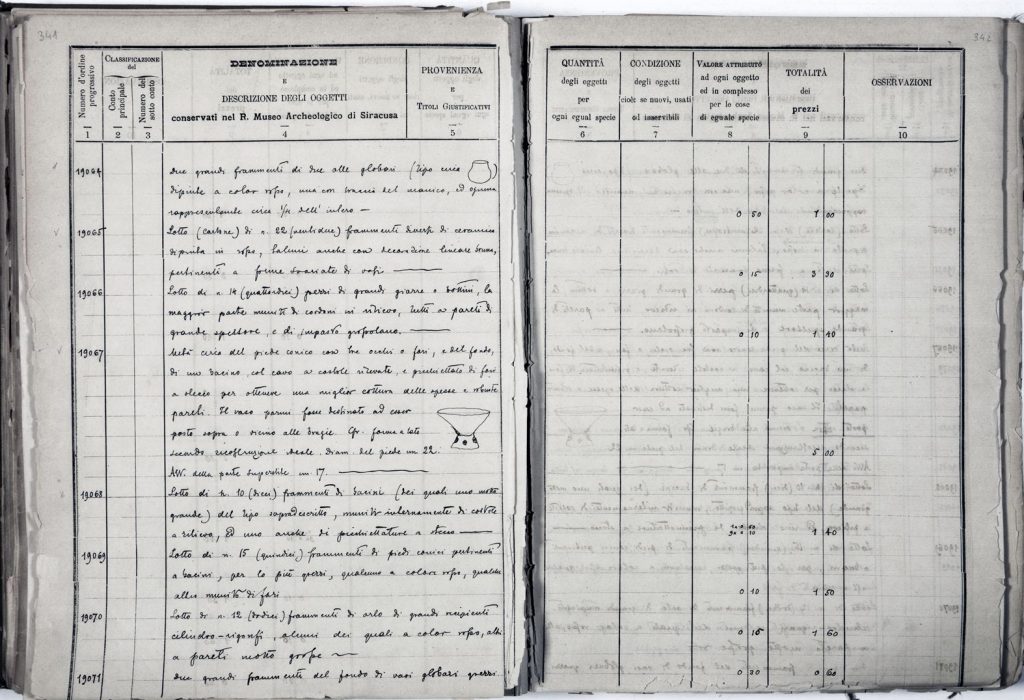 341
Numero d'ordine progressivo
CLASSIFICAZIONE del
Conto principale
Numero del sotto conto
DENOMINAZIONE
E
DESCRIZIONE DEGLI OGGETTI
conservati nel R. Museo Archeologico di Siracusa
PROVENIENZA
E
TITOLI GIUSTIFICATIVI
1 2 3 4 5
19064 due grandi frammenti di due olle globari (tipo circa )
dipinte a color rosso, una con traccia del manico, ed ognuna
rappresentante circa dell' intero —
19065 Lotto (cartone) di n. 22 (ventidue) frammenti diversi di ceramica
dipinta in rosso, taluni anche con decorazione lineare bruna,
pertinenti a forme svariate di vasi —
19066 Lotto di n. 14 (quattordici) pezzi di grandi giarre o bottini, la
maggior parte muniti di cordoni in rilievo, tutti a pareti di
grande spessore, e di impasto grossolano. —
19067 Metà circa del piede conico con tre occhi o fori, e del fondo,
di un bacino, col cavo a costole rilevate, e picchiettato di fori
a stecco per ottenere una miglior cottura delle spesse e robuste
pareti. Il vaso parmi fosse destinato ad esser
posto sopra o vicino alle bragie. Cfr. forma a lato
secondo ricostruzione ideale. Diam. del piede cm 22.
Alt. della parte superstite cm 17. —
19068 Lotto di n. 10 (dieci) frammenti di bacini (dei quali uno molto
grande) del tipo sopradescritto, muniti internamente di costole
a rilievo, ed uno anche di picchiettature a stecco —
19069 Lotto di n. 15 (quindici) frammenti di piedi conici pertinenti
a bacini, per lo più grezzi, qualcuno a colore rosso, qualche
altro munito di fori
19070 Lotto di n. 12 (dodici) frammenti di orlo di grandi recipienti
cilindro-, alcuni dei quali a color rosso, altri
a pareti molto grosse —
19071 due grandi frammenti del fondo di vasi globari grezzi
342
QUANTITÀ
degli oggetti
per
ogni egual specie
CONDIZIONE
degli oggetti
cioè: se nuovi, usati
od inservibili
VALORE ATTRIBUITO
ad ogni oggetto
ed in complesso
per le cose
di eguale specie
TOTALITÀ
dei
prezzi
OSSERVAZIONI
6 7 8 9 10
0 50 1 00
0 15 3 30
0 10 1 40
5 00
1 40
0 10 1 50
0 15 1 60
0 30 0 60